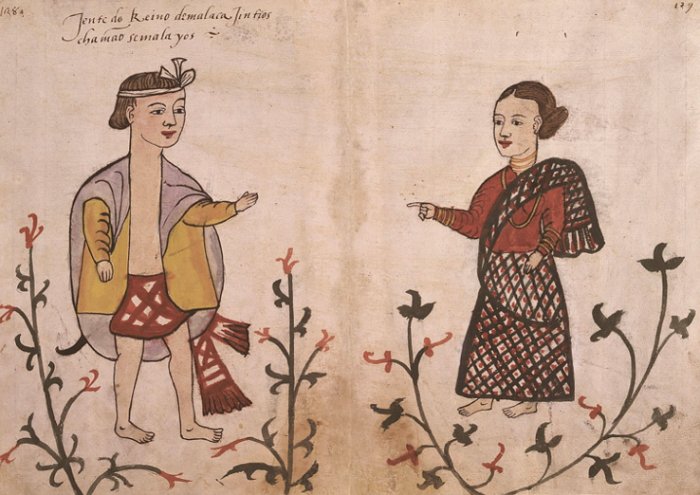 Jente do Reino demalaca Jintios
chamão semalayos